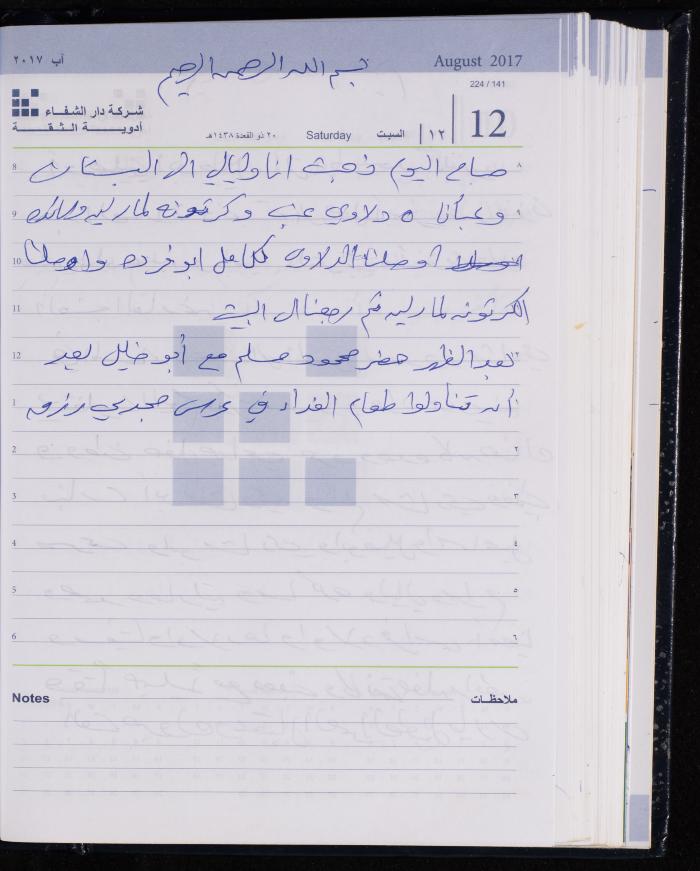 آب ٢٠١٧
August 2017
بسم الله الرحمن الرحيم
224 / 141
شركة دار الشفاء
أدويــة الـثـقـة
12
١٢
السبت
Saturday
٢٠ ذو القعدة ١٤٣٨هـ
8 صباح اليوم ذهبت انا وليالي الى البستان ٨
9 وعبأنا ٥ دلاوي عنب وكرتونه لمارليه
10 اوصلنا الدلاوه لكامل ابو فرده واوصلنا
11 الكرتونه لمارليه ثم رجعنا الى البيت
12 بعد الظهر حضر محمود مسلم مع أبو خليل بعد ١٢
1 أن تناولوا طعام الغداء في عرس مجدي رزق
2 ٢
3 ٣
4 ٤
5 ٥
6 ٦
Notes ملاحظـات